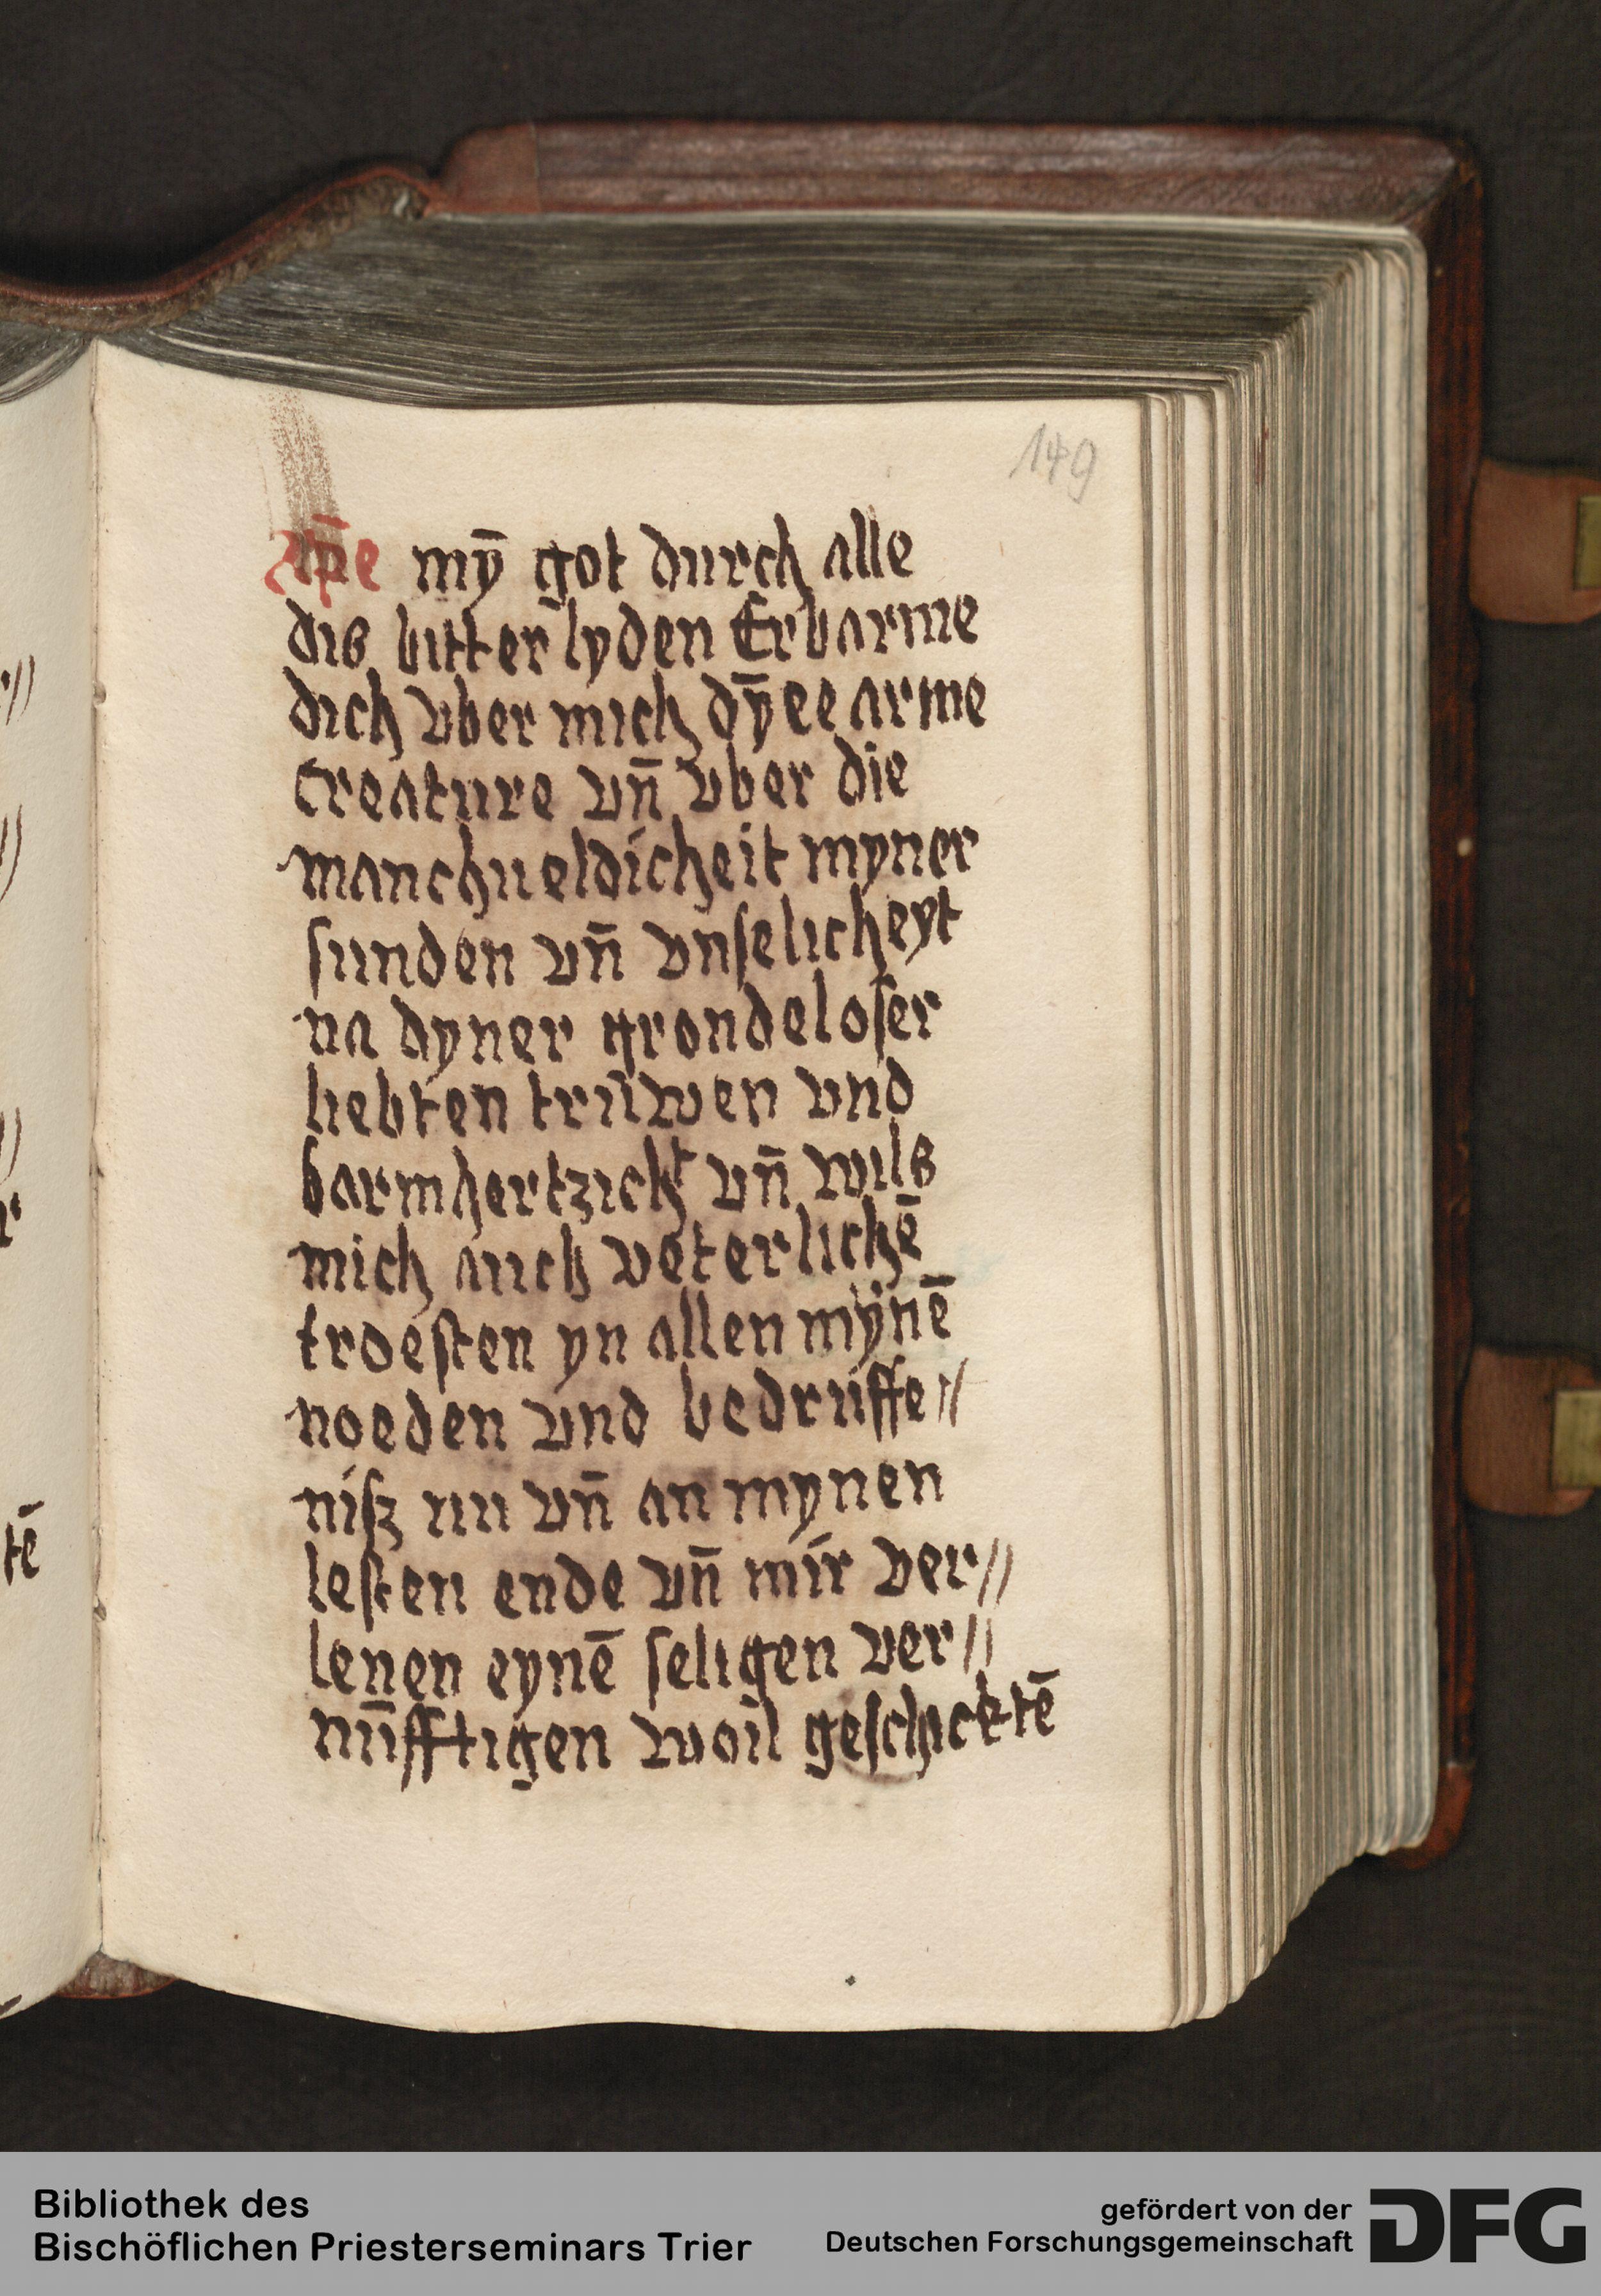 149
xp̄e mȳ got durch alle
dis bitter lyden Erbarme
dich vber mich dȳee arme
creature vn̄ vber die
manchueldicheit myner
sunden vn̄ vnselicheyt
na dyner grondeloser
liebten trůwen vnd
barmhertzickt vn̄ wils
mich auch veterlichē
troesten yn allen mynē
noeden vnd bedruffe//
nisz nu vn̄ an mynen
lesten ende vn̄ mir ver//
lenen eynē seligen ver//
nūfftigen woil geschicktē
tē
Bibliothek des
Bischöflichen Priesterseminars Trier
gefördert von der
Deutschen Forschungsgemeinschaft
DFG